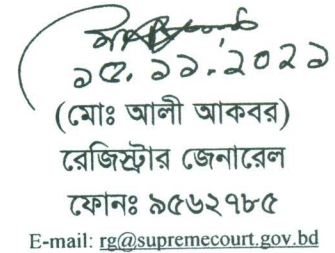 ১৫.১১.২০২১
(মোঃ আলী আকবর)
রেজিস্ট্রার জেনারেল
ফোনঃ ৯৫৬২৭৮৫
E-mail: rg@supremecourt.gov.bd